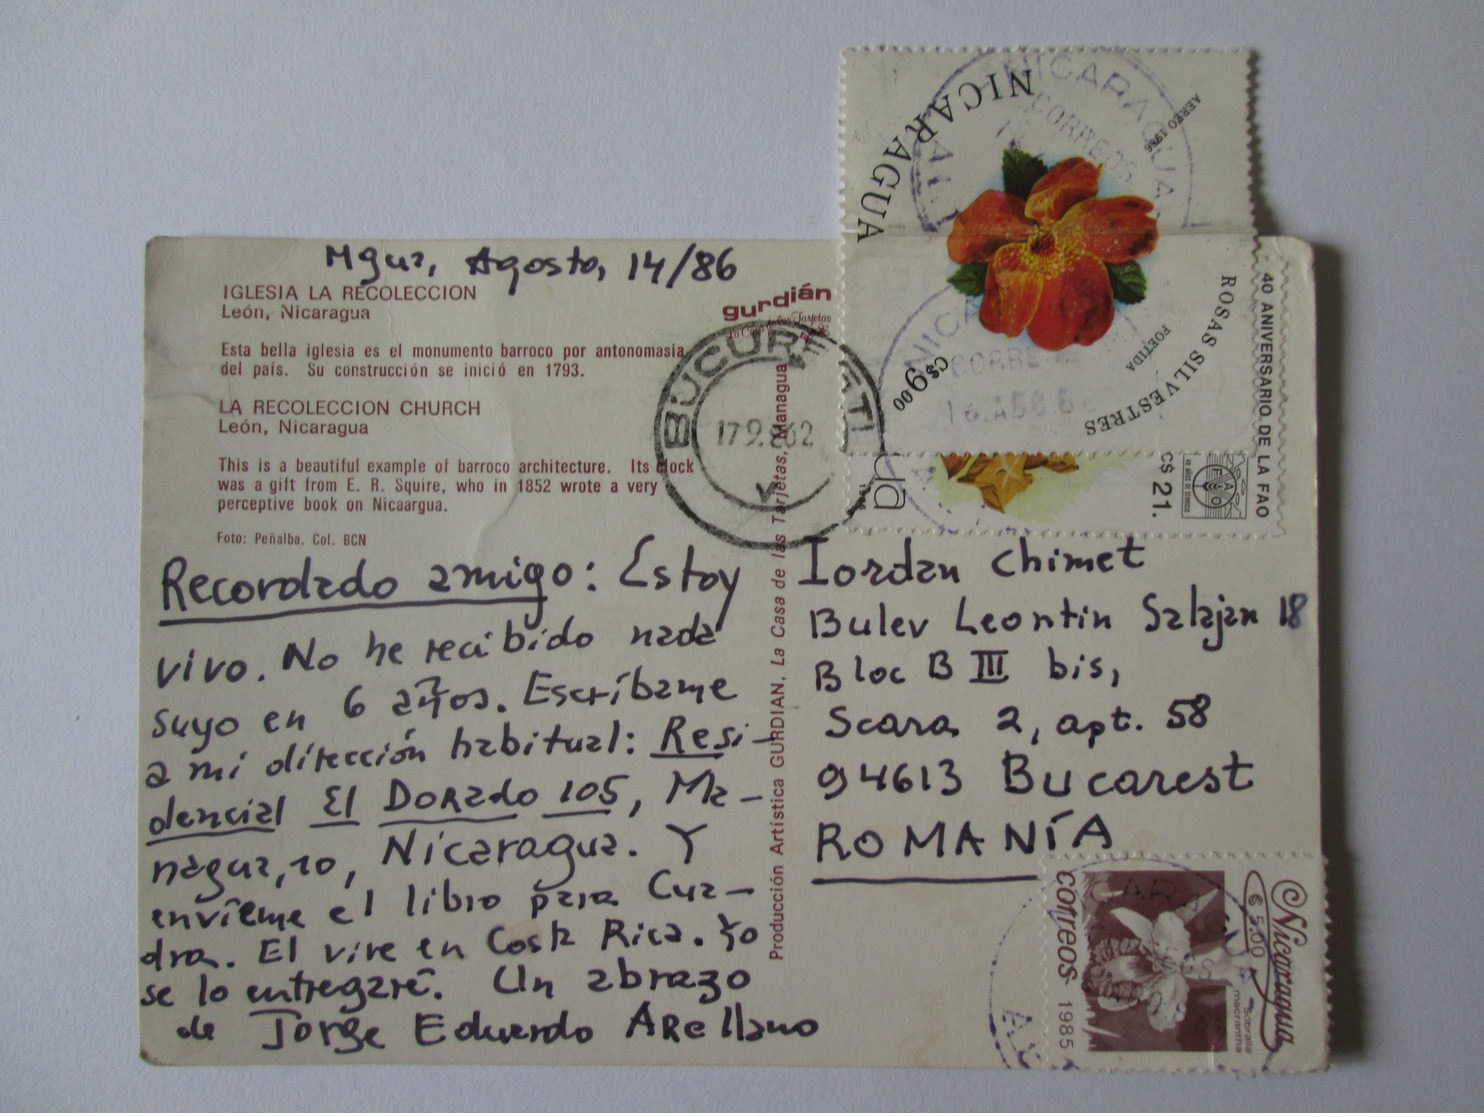 Mgua, Agosto, 14/86
IGLESIA LA RECOLECCION
León, Nicaragua
Esta bella iglesia es el monumento barroco por antonomasia
del país. Su construcción se inició en 1793.
LA RECOLECCION CHURCH
León, Nicaragua
This is a beautiful example of barroco architecture. Its clock
was a gift from E. R. Squire, who in 1852 wrote a very
perceptive book on Nicaargua.
Foto: Peñalba. Col. BCN
Recordado amigo: Estoy
vivo. No he recibido nada
suyo en 6 años. Escríbame
a mi dirección habitual: Resi-
dencial El Dorado 105, Ma-
nagua, 10, Nicaragua. Y
envíeme el libro para Cua-
dra. El vive en Costa Rica. Yo
se lo entregaré. Un abrazo
de Jorge Eduardo Arellano
gurdián
La Casa de las Tarjetas
BUCUREȘTI
17.9.86
Producción Artística GURDIAN, La Casa de las Tarjetas, Managua
Iordan Chimet
Bulev Leontin Salajan 18
Bloc B III bis,
Scara 2, apt. 58
94613 Bucarest
ROMANÍA
NICARAGUA
AEREO 1986
C$9.00
ROSAS SILVESTRES
FOETIDA
NICARAGUA
CORREOS
CORREOS
16.AGO.8
40 ANIVERSARIO DE LA FAO
C$ 21.
FAO
ua
Nicaragua
₡ 5.00
correos 1985
Sobralia
macrantha